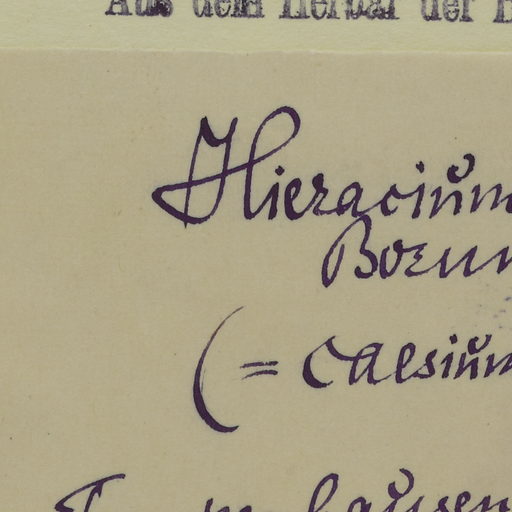 Aus dem Herbar der B
Hieracium
Born
(= caesium